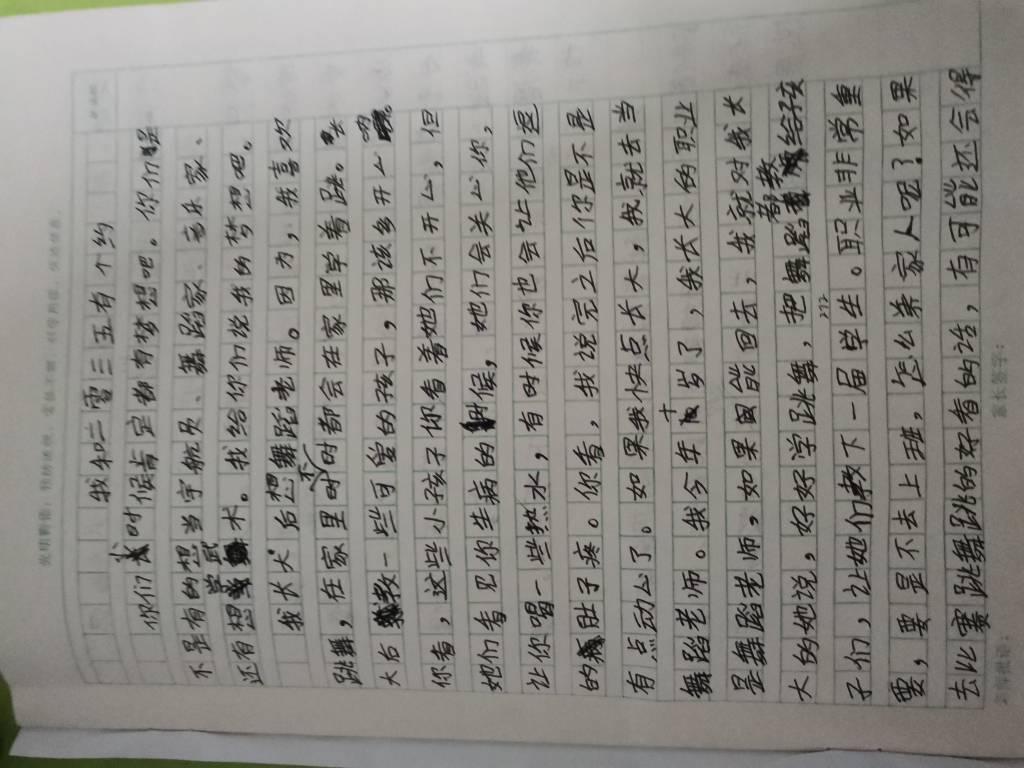 我和二零三五有个约
你们小时候肯定都有梦想吧。你们是
不是有的想当宇航员、舞蹈家、音乐家、
还有想学武术。我给你们说我的梦想吧。
我长大后想舞蹈老师。因为，我喜欢
跳舞，在家里时不时都会在家里学着跳。长
大后教一些可爱的孩子，那该多开心啊。
你看，这些小孩子你看着她们不开心，但
她们看见你生病的时候，她们会关心你，
让你喝一些热水，有时候你也会让他们逗
的肚子疼。你看，我说完之后你是不是
有点动心了。如果我快点长大，我就去当
舞蹈老师。我今年十岁了，我长大的职业
是舞蹈老师，如果能回去，我就对我长
大的她说，好好学跳舞，把舞蹈都教给孩
子们，让她们教下一届学生。职业非常重
要，要是不去上班，怎么养家人呢？如果
去比赛跳舞跳的好看的话，有可能还会得
家长签字：